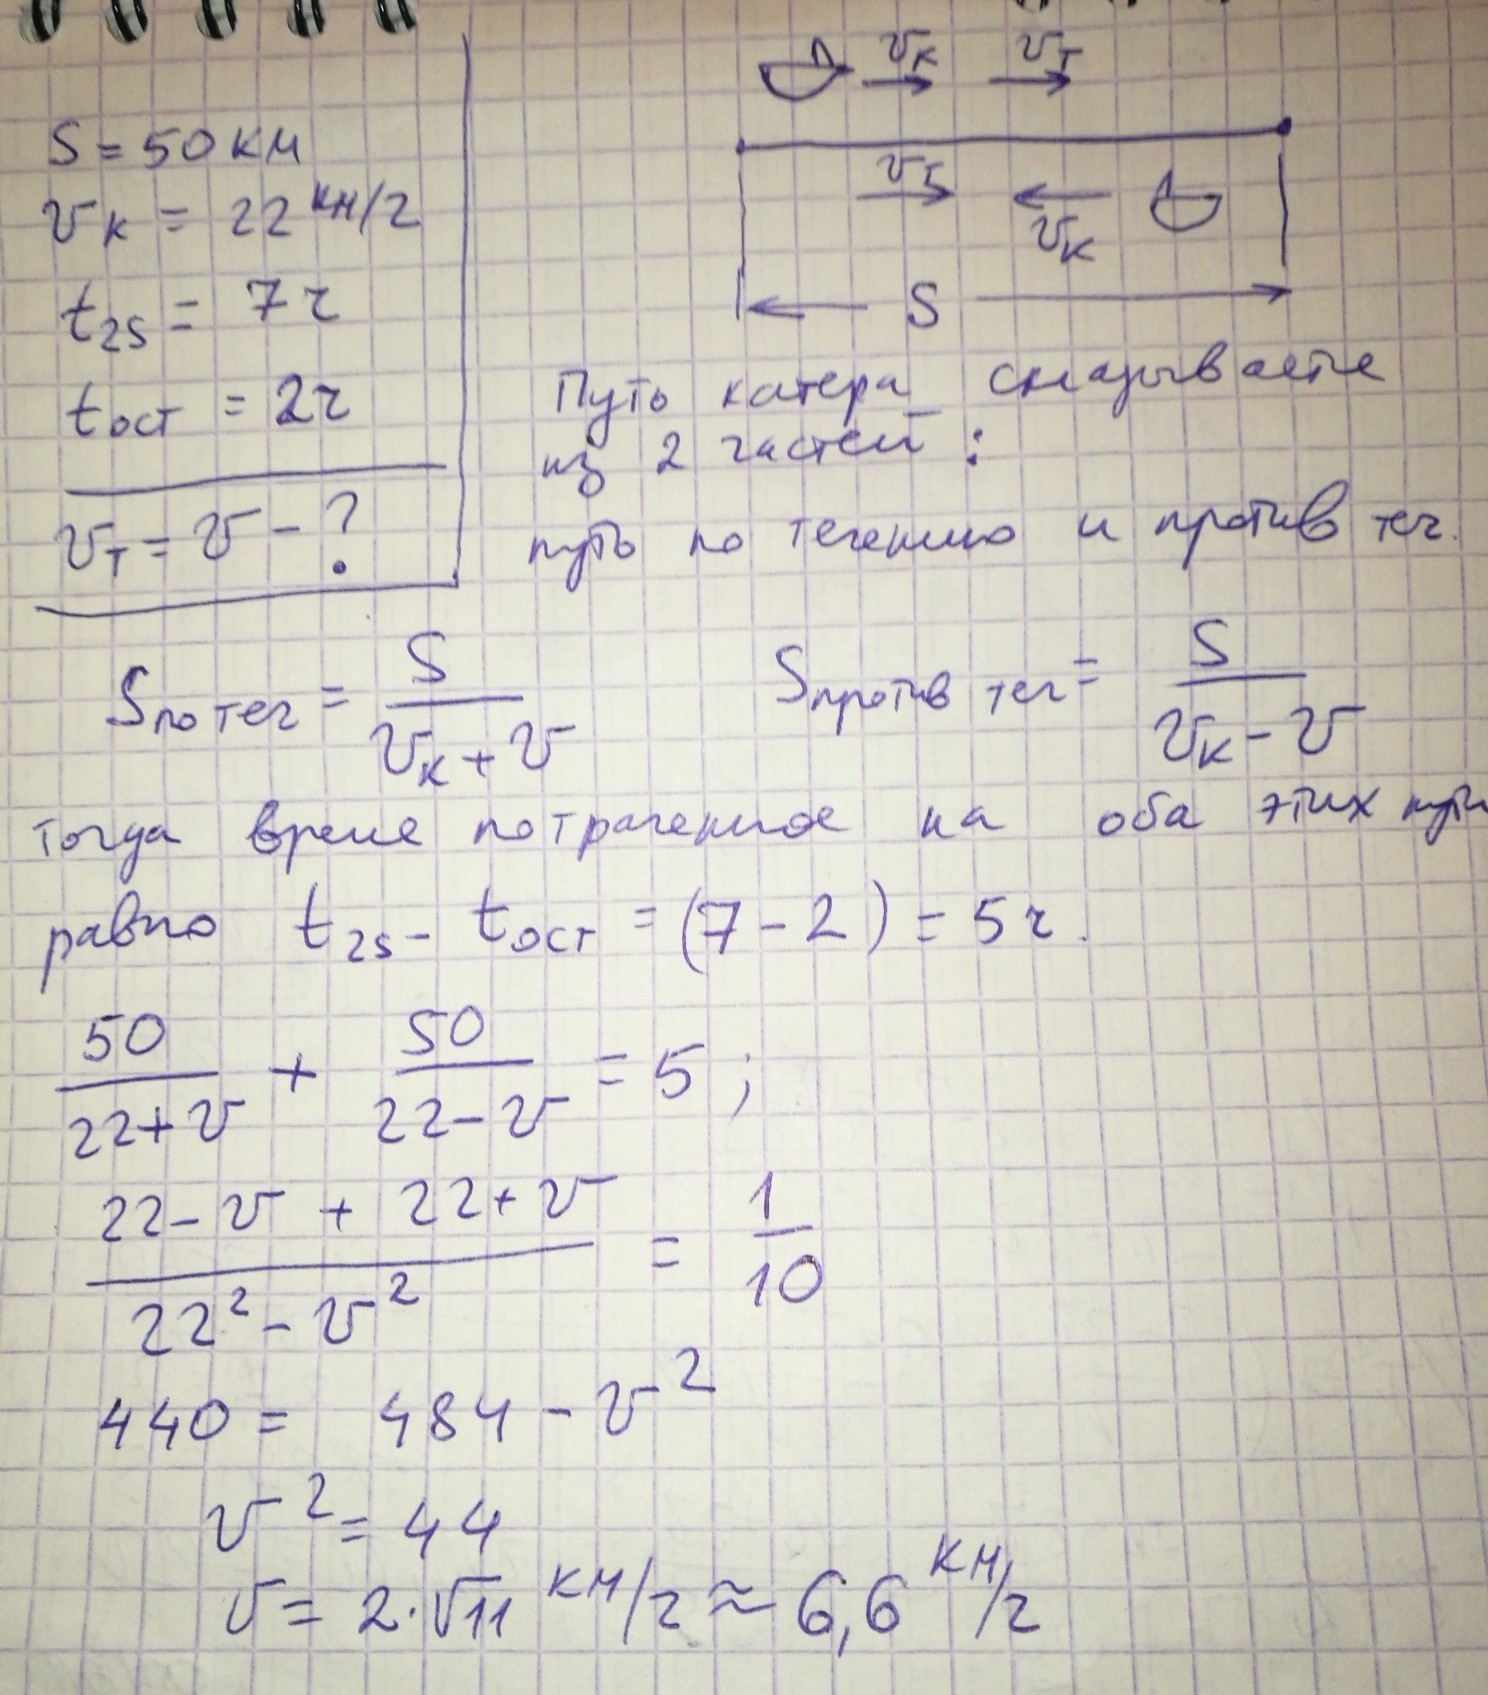 S = 50 км
v_к = 22 км/г
t_2s = 7 ч
t_ост = 2 ч
v_т = v - ?
v_к v_т
v_т v_к
S
Путь катера складывается
из 2 частей:
путь по течению и против теч.
S_по теч = S / (v_к + v) S_против теч = S / (v_к - v)
тогда время потраченное на оба этих пути
равно t_2s - t_ост = (7 - 2) = 5 ч.
50 / (22 + v) + 50 / (22 - v) = 5 ;
(22 - v + 22 + v) / (22² - v²) = 1 / 10
440 = 484 - v²
v² = 44
v = 2·√11 км/г ≈ 6,6 км/г